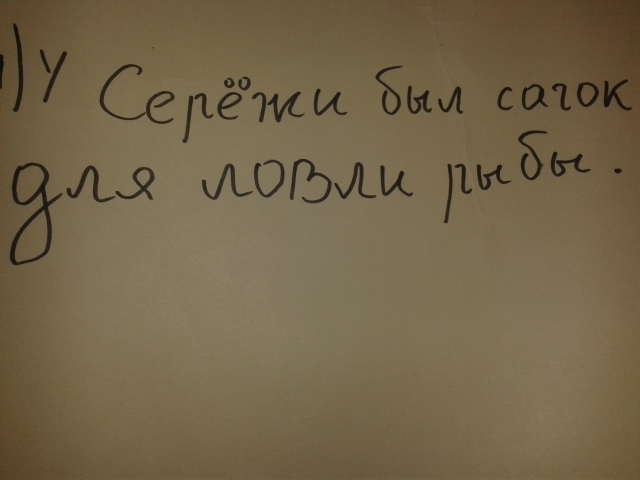 ) У Серёжи был сачок
для ловли рыбы.